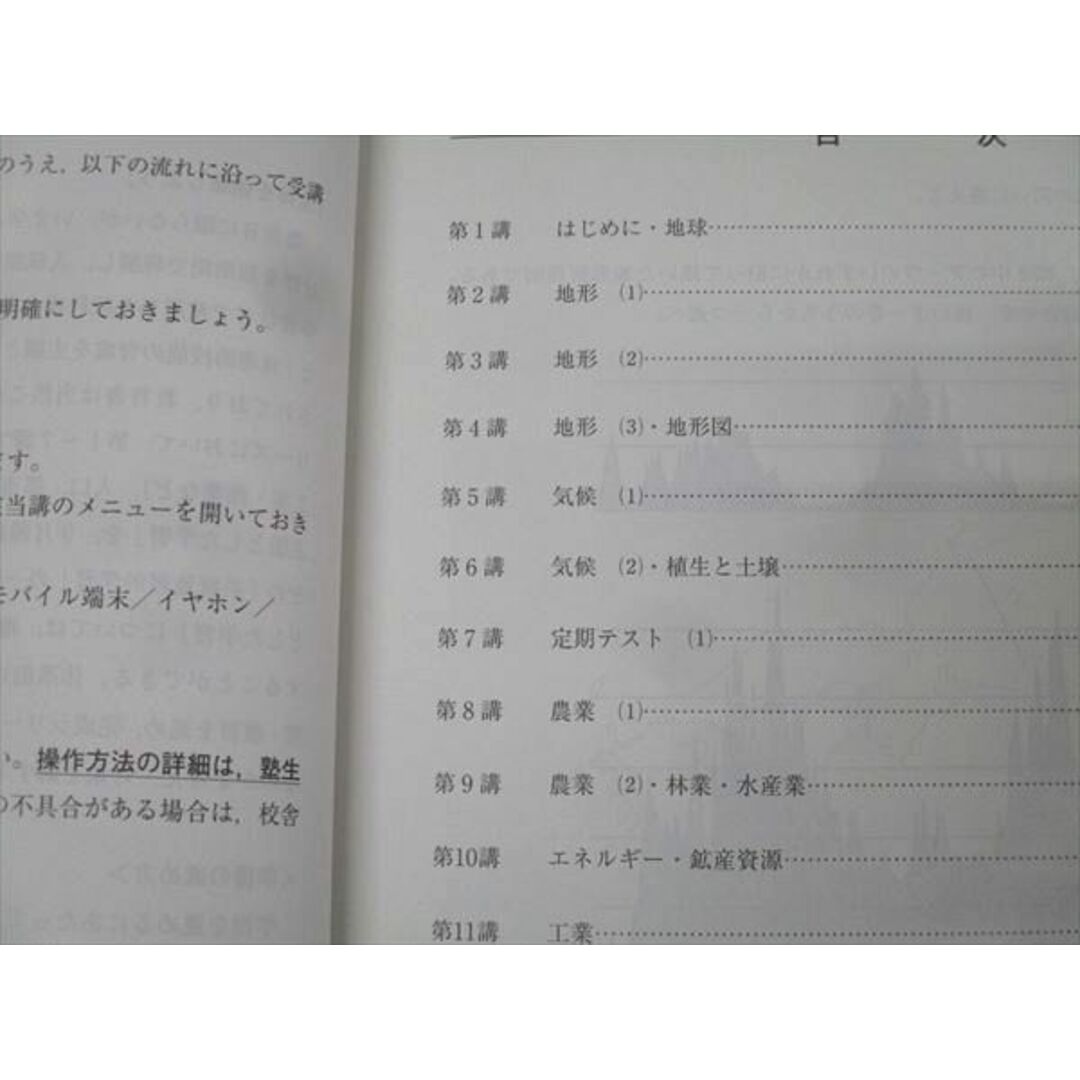 のうえ，以下の流れに沿って受講
明確にしておきましょう。
ます。
当講のメニューを開いておき
モバイル端末／イヤホン／
い。操作方法の詳細は，塾生
の不具合がある場合は，校舎
目次
第1講 はじめに・地球
第2講 地形 (1)
第3講 地形 (2)
第4講 地形 (3)・地形図
第5講 気候 (1)
第6講 気候 (2)・植生と土壌
第7講 定期テスト (1)
第8講 農業 (1)
第9講 農業 (2)・林業・水産業
第10講 エネルギー・鉱産資源
第11講 工業